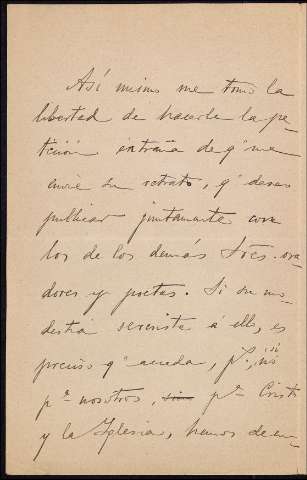 Así mismo me tomo la
libertad de hacerle la pe-
tición extraña de q' me
envie su retrato, q' deseo
publicar juntamente con
los de los demás Sres. ora-
dores y poetas. Si su mo-
destia se resiste á ello, es
preciso q' acceda, pr. si nó
pa nosotros, sino pa Cristo
y la Iglesia, hemos de en-